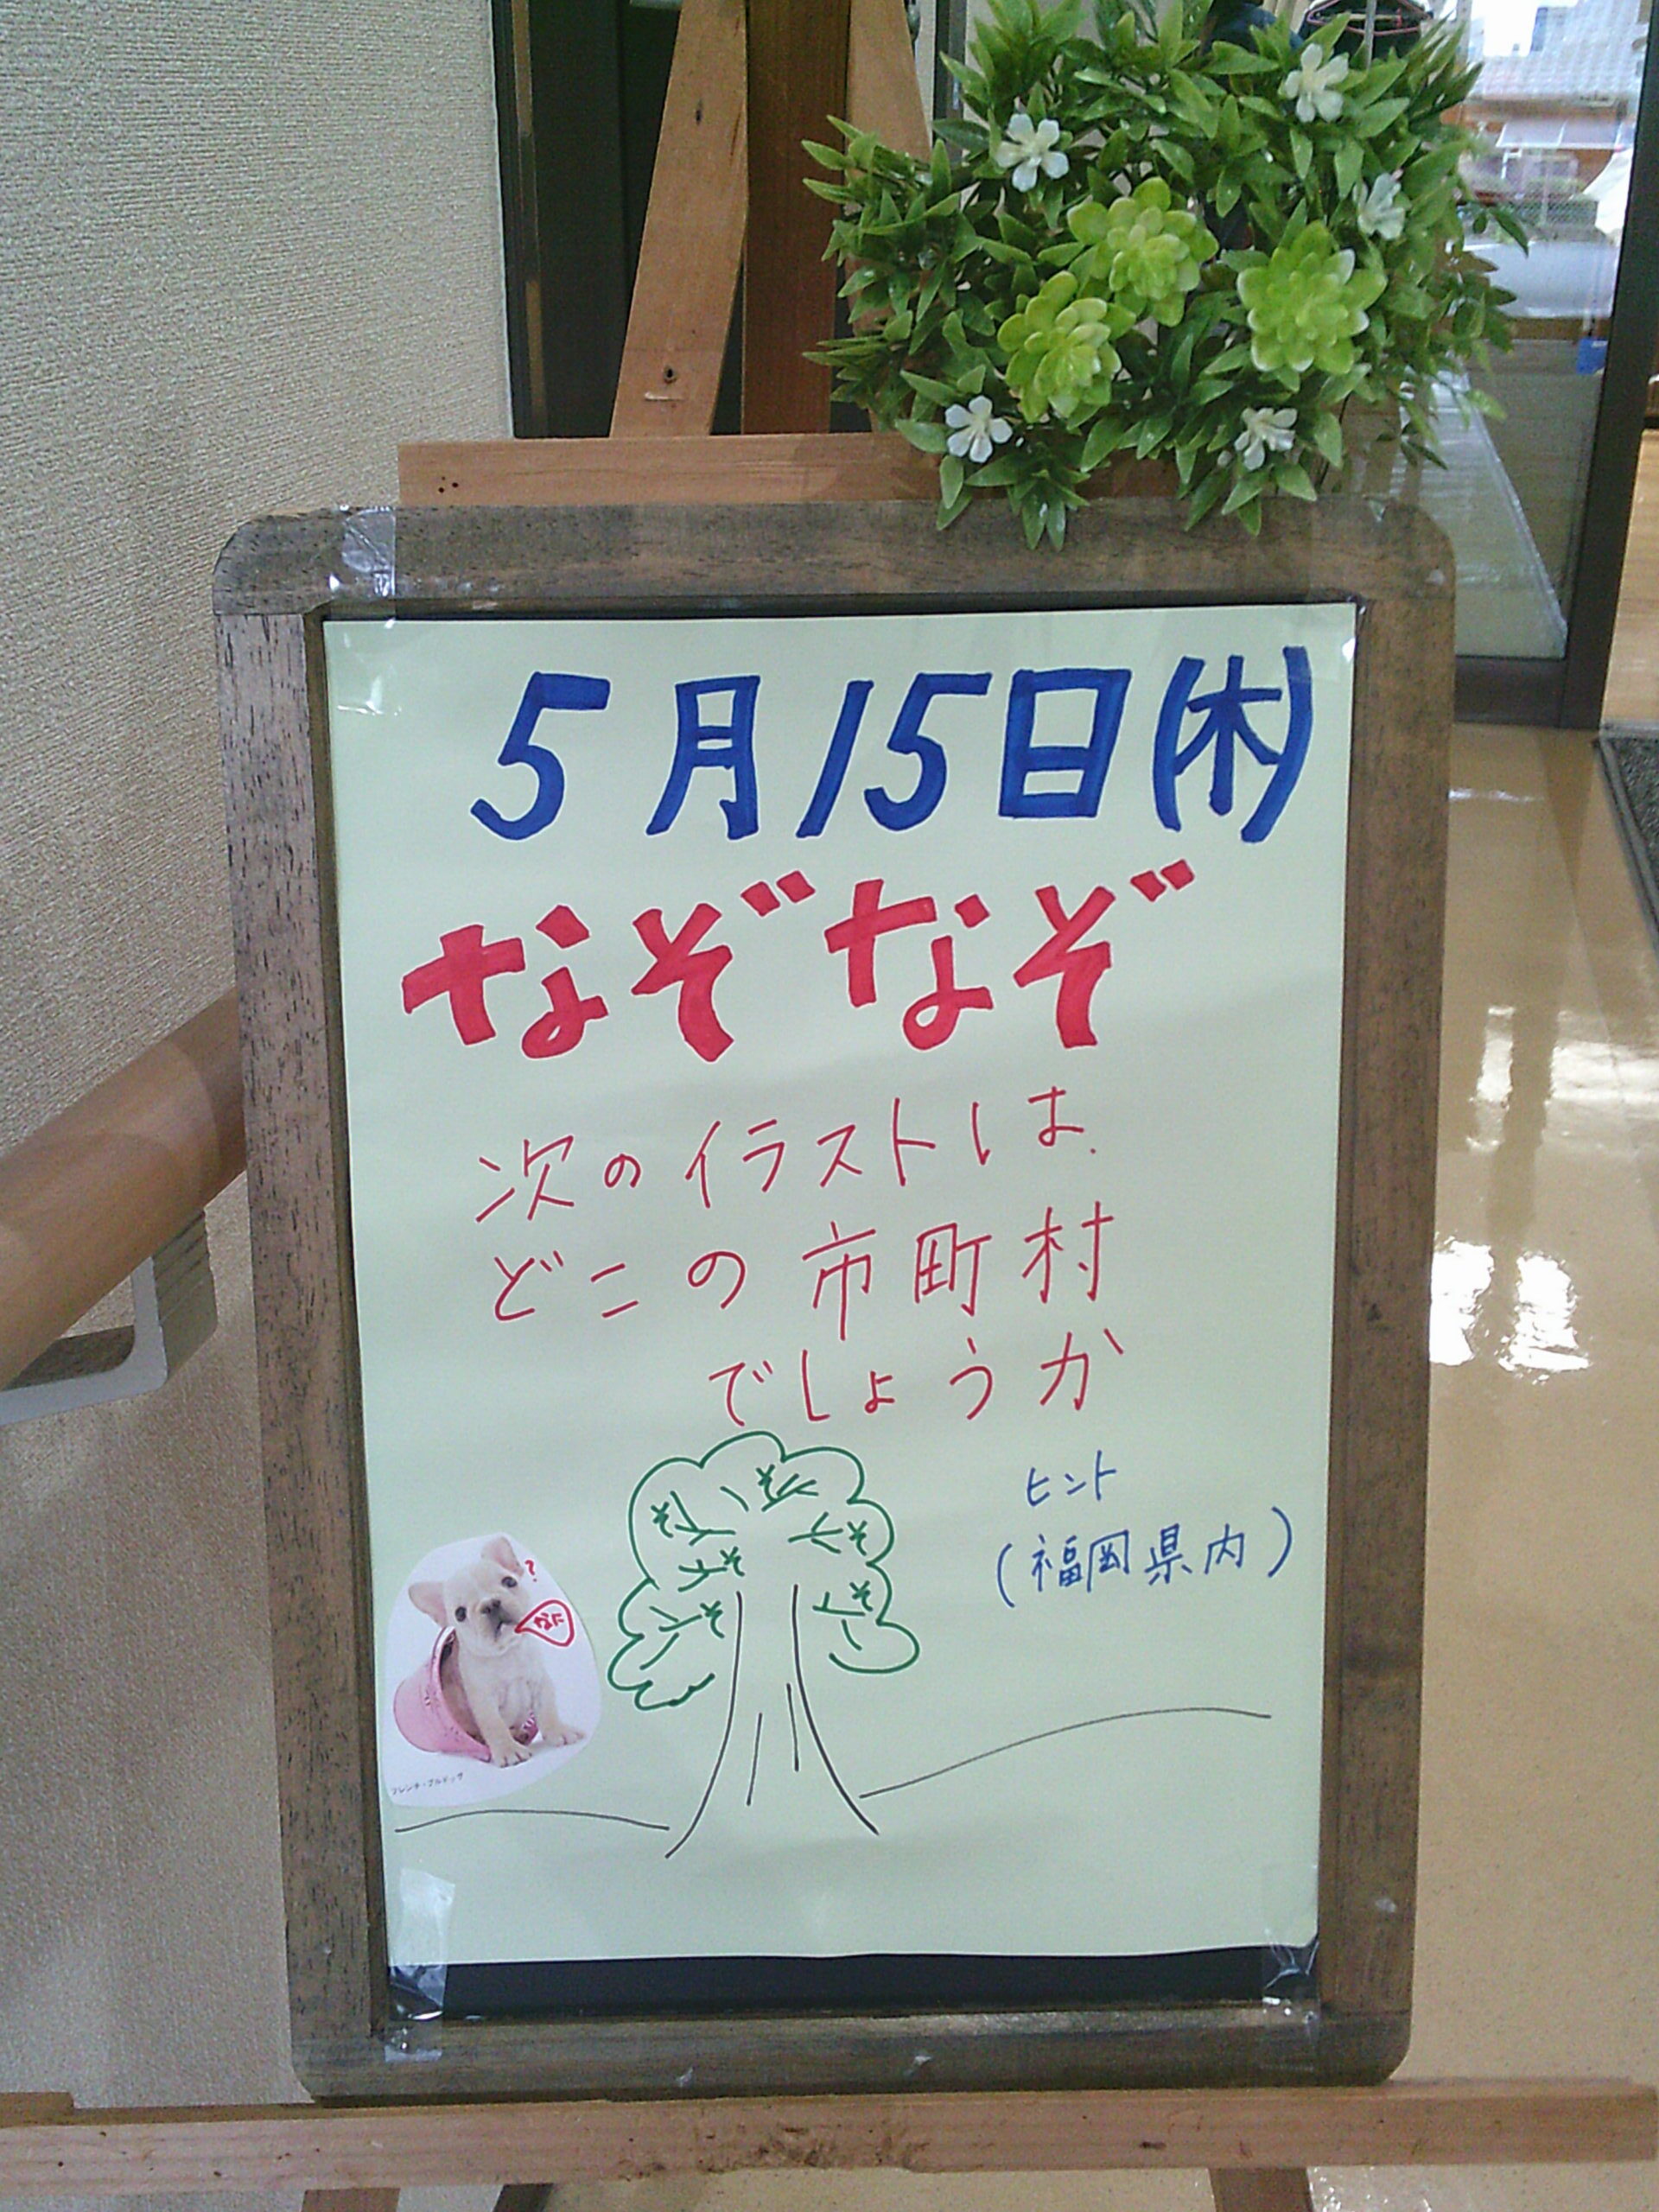 5月15日(木)
なぞなぞ
次のイラストは
どこの市町村
でしょうか
ヒント
(福岡県内)
そ
そ
そ
そ
そ
そ
?
なに
フレンチ・ブルドッグ